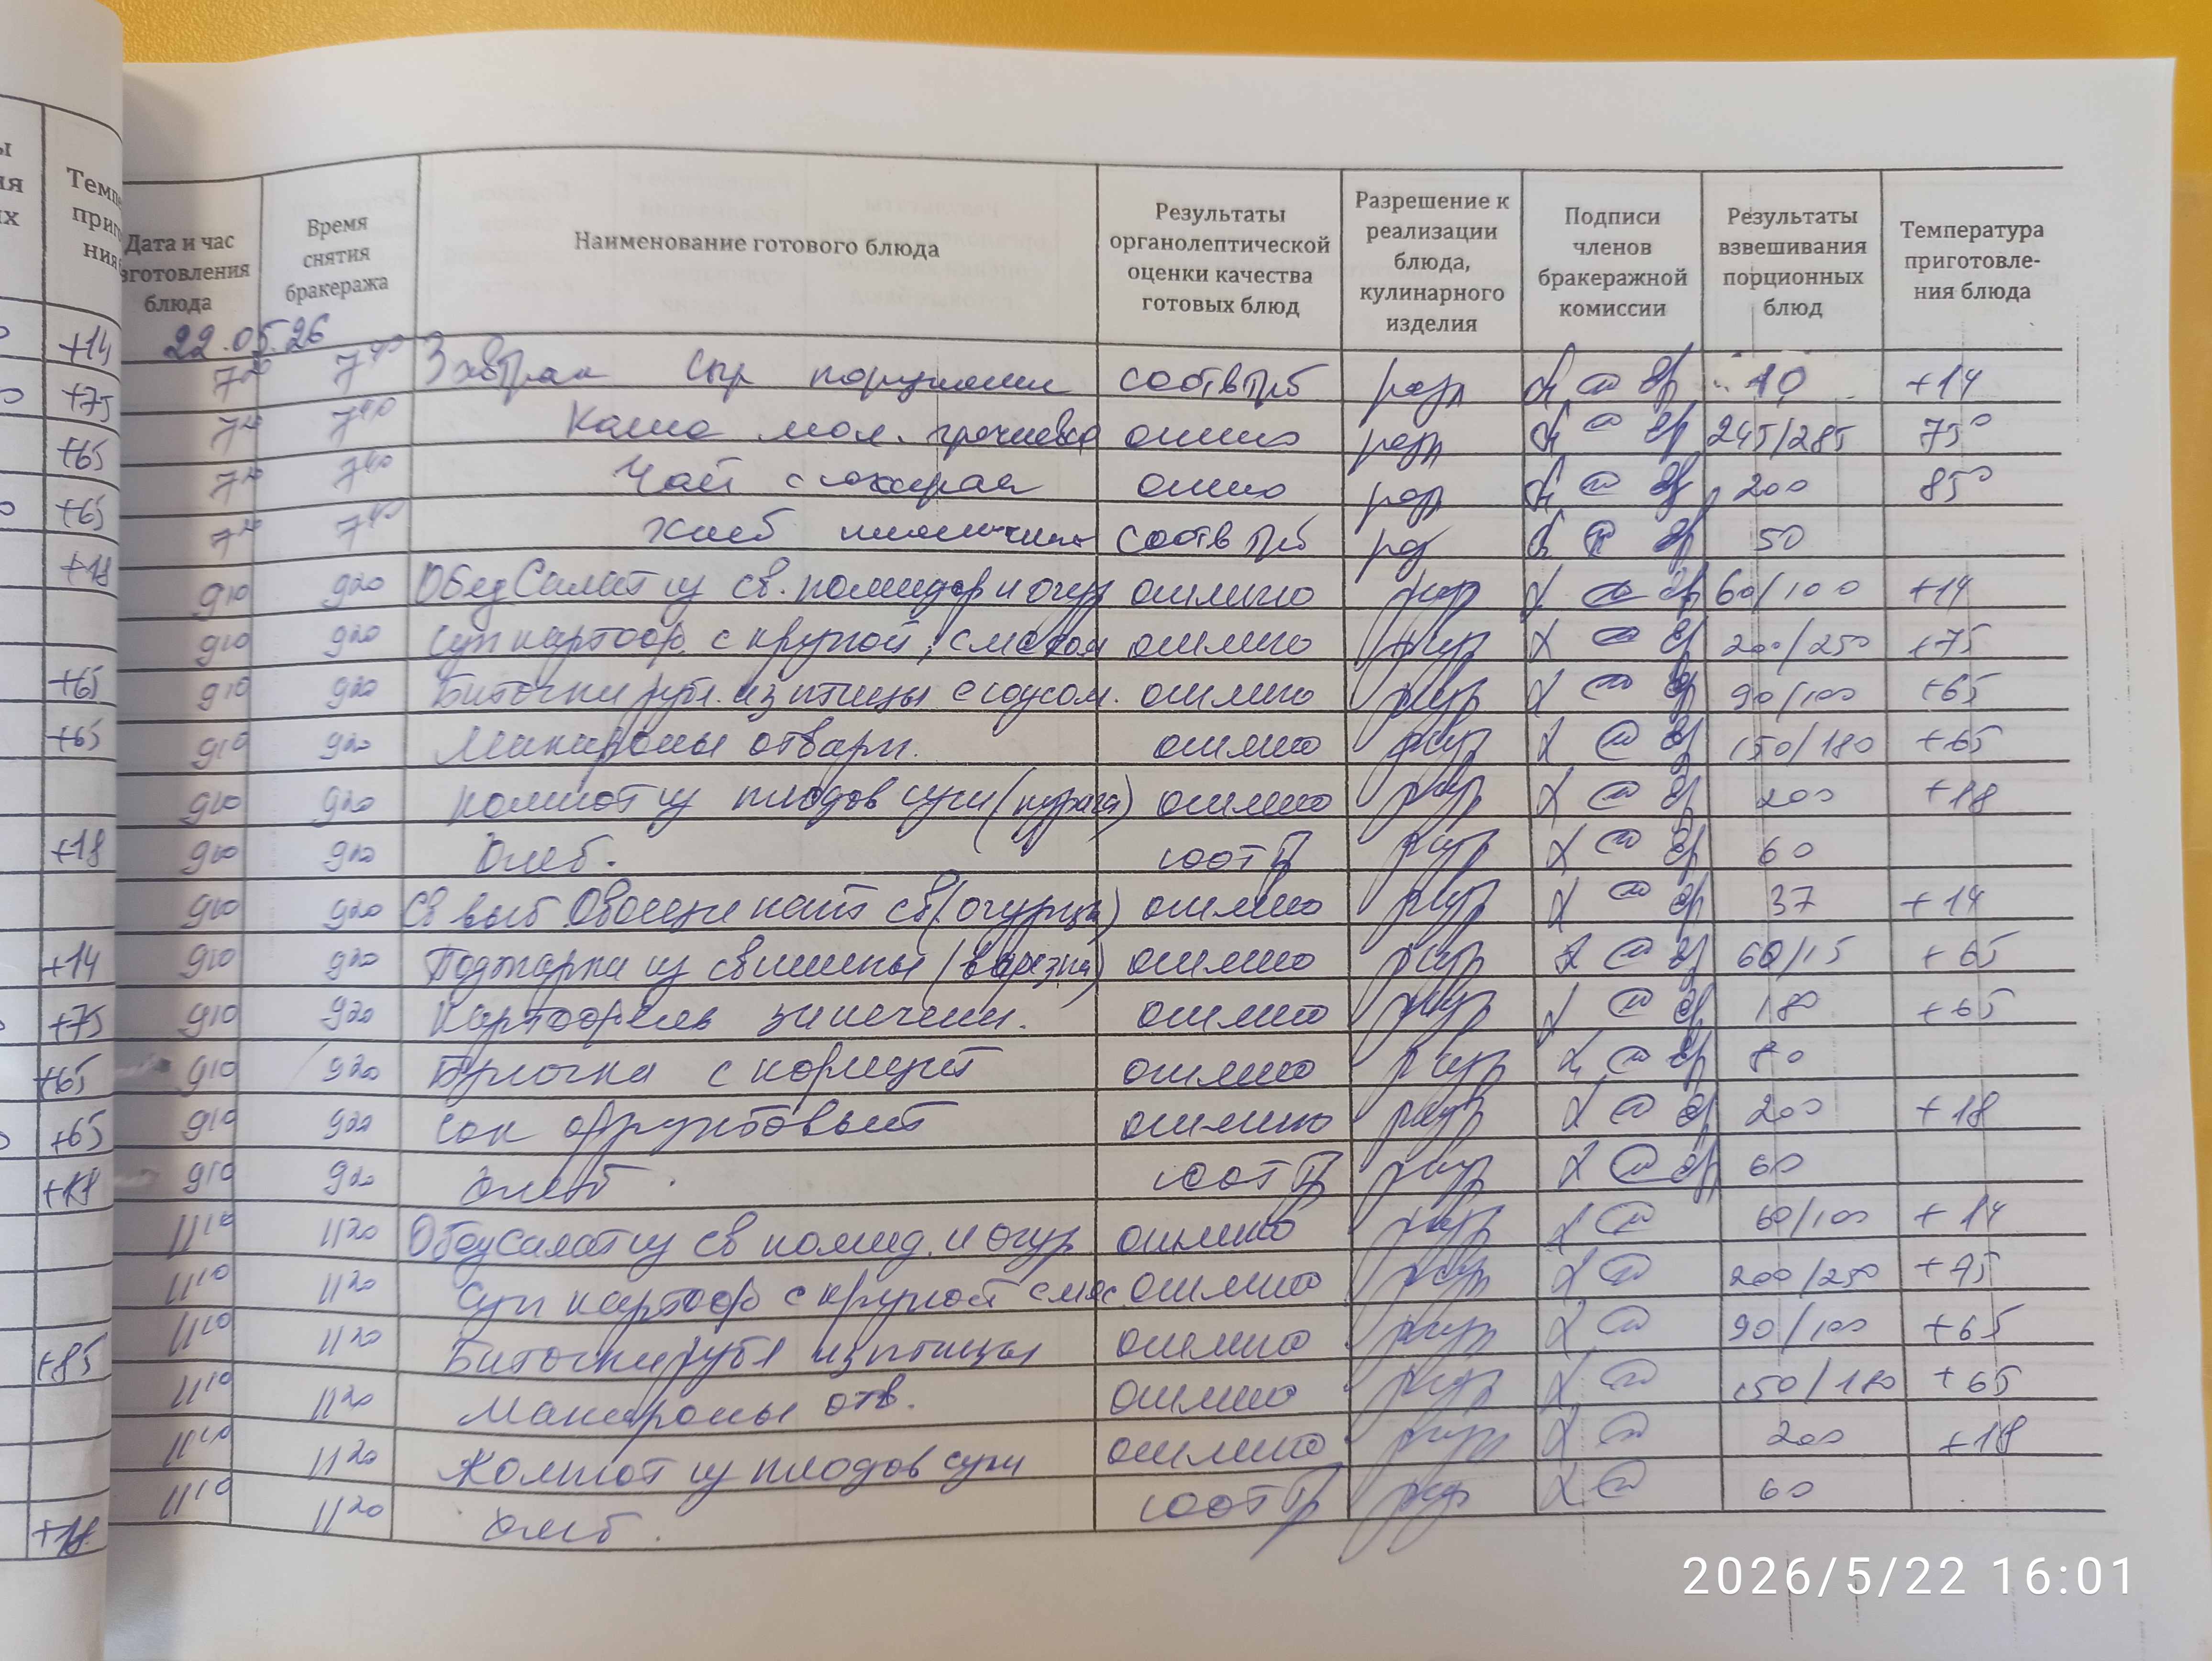 Дата и час изготовления блюда
Время снятия бракеража
Наименование готового блюда
Результаты органолептической оценки качества готовых блюд
Разрешение к реализации блюда, кулинарного изделия
Подписи членов бракеражной комиссии
Результаты взвешивания порционных блюд
Температура приготовле-ния блюда
22.05.26
7 20 7 40 Завтрак сыр порционн соотв 10 +14
7 20 7 40 Каша мол. гречнева отлично 245/285 75°
7 20 7 40 Чай с сахарам отлично 200 85°
7 20 7 40 Хлеб пшеничн соотв 50
9 10 9 20 Обед Салат из св. помидор и огур отлично разр 60/100 +14
9 10 9 20 Суп картоф. с крупой, с мясом отлично разр 200/250 +75
9 10 9 20 Биточки рубл. из птицы с соусом. отлично разр 90/100 +65
9 10 9 20 Макароны отварн. отлично разр 150/180 +65
9 10 9 20 Компот из плодов суш (курага) отлично разр 200 +18
9 10 9 20 Хлеб. соот разр 60
9 10 9 20 Св выб Овощи нат св (огурцы) отлично разр 37 +14
9 10 9 20 Поджарка из свинины (вырезка) отлично разр 60/15 +65
9 10 9 20 Картофель запечен. отлично разр 180 +65
9 10 9 20 Булочка с корицей отлично разр 80
9 10 9 20 Сок фруктовый отлично разр 200 +18
9 10 9 20 Хлеб. соот разр 60
11 10 11 20 Обед Салат из св помид. и огур отлично разр 60/100 +14
11 10 11 20 Суп картоф с крупой с мяс. отлично разр 200/250 +75
11 10 11 20 Биточки рубл из птицы отлично разр 90/100 +65
11 10 11 20 Макароны отв. отлично разр 150/180 +65
11 10 11 20 Компот из плодов суш отлично разр 200 +18
11 10 11 20 Хлеб. соот разр 60
+14
+75
+65
+65
+18
+65
+65
+18
+14
+75
+65
+65
+18
+85
+18
2026/5/22 16:01